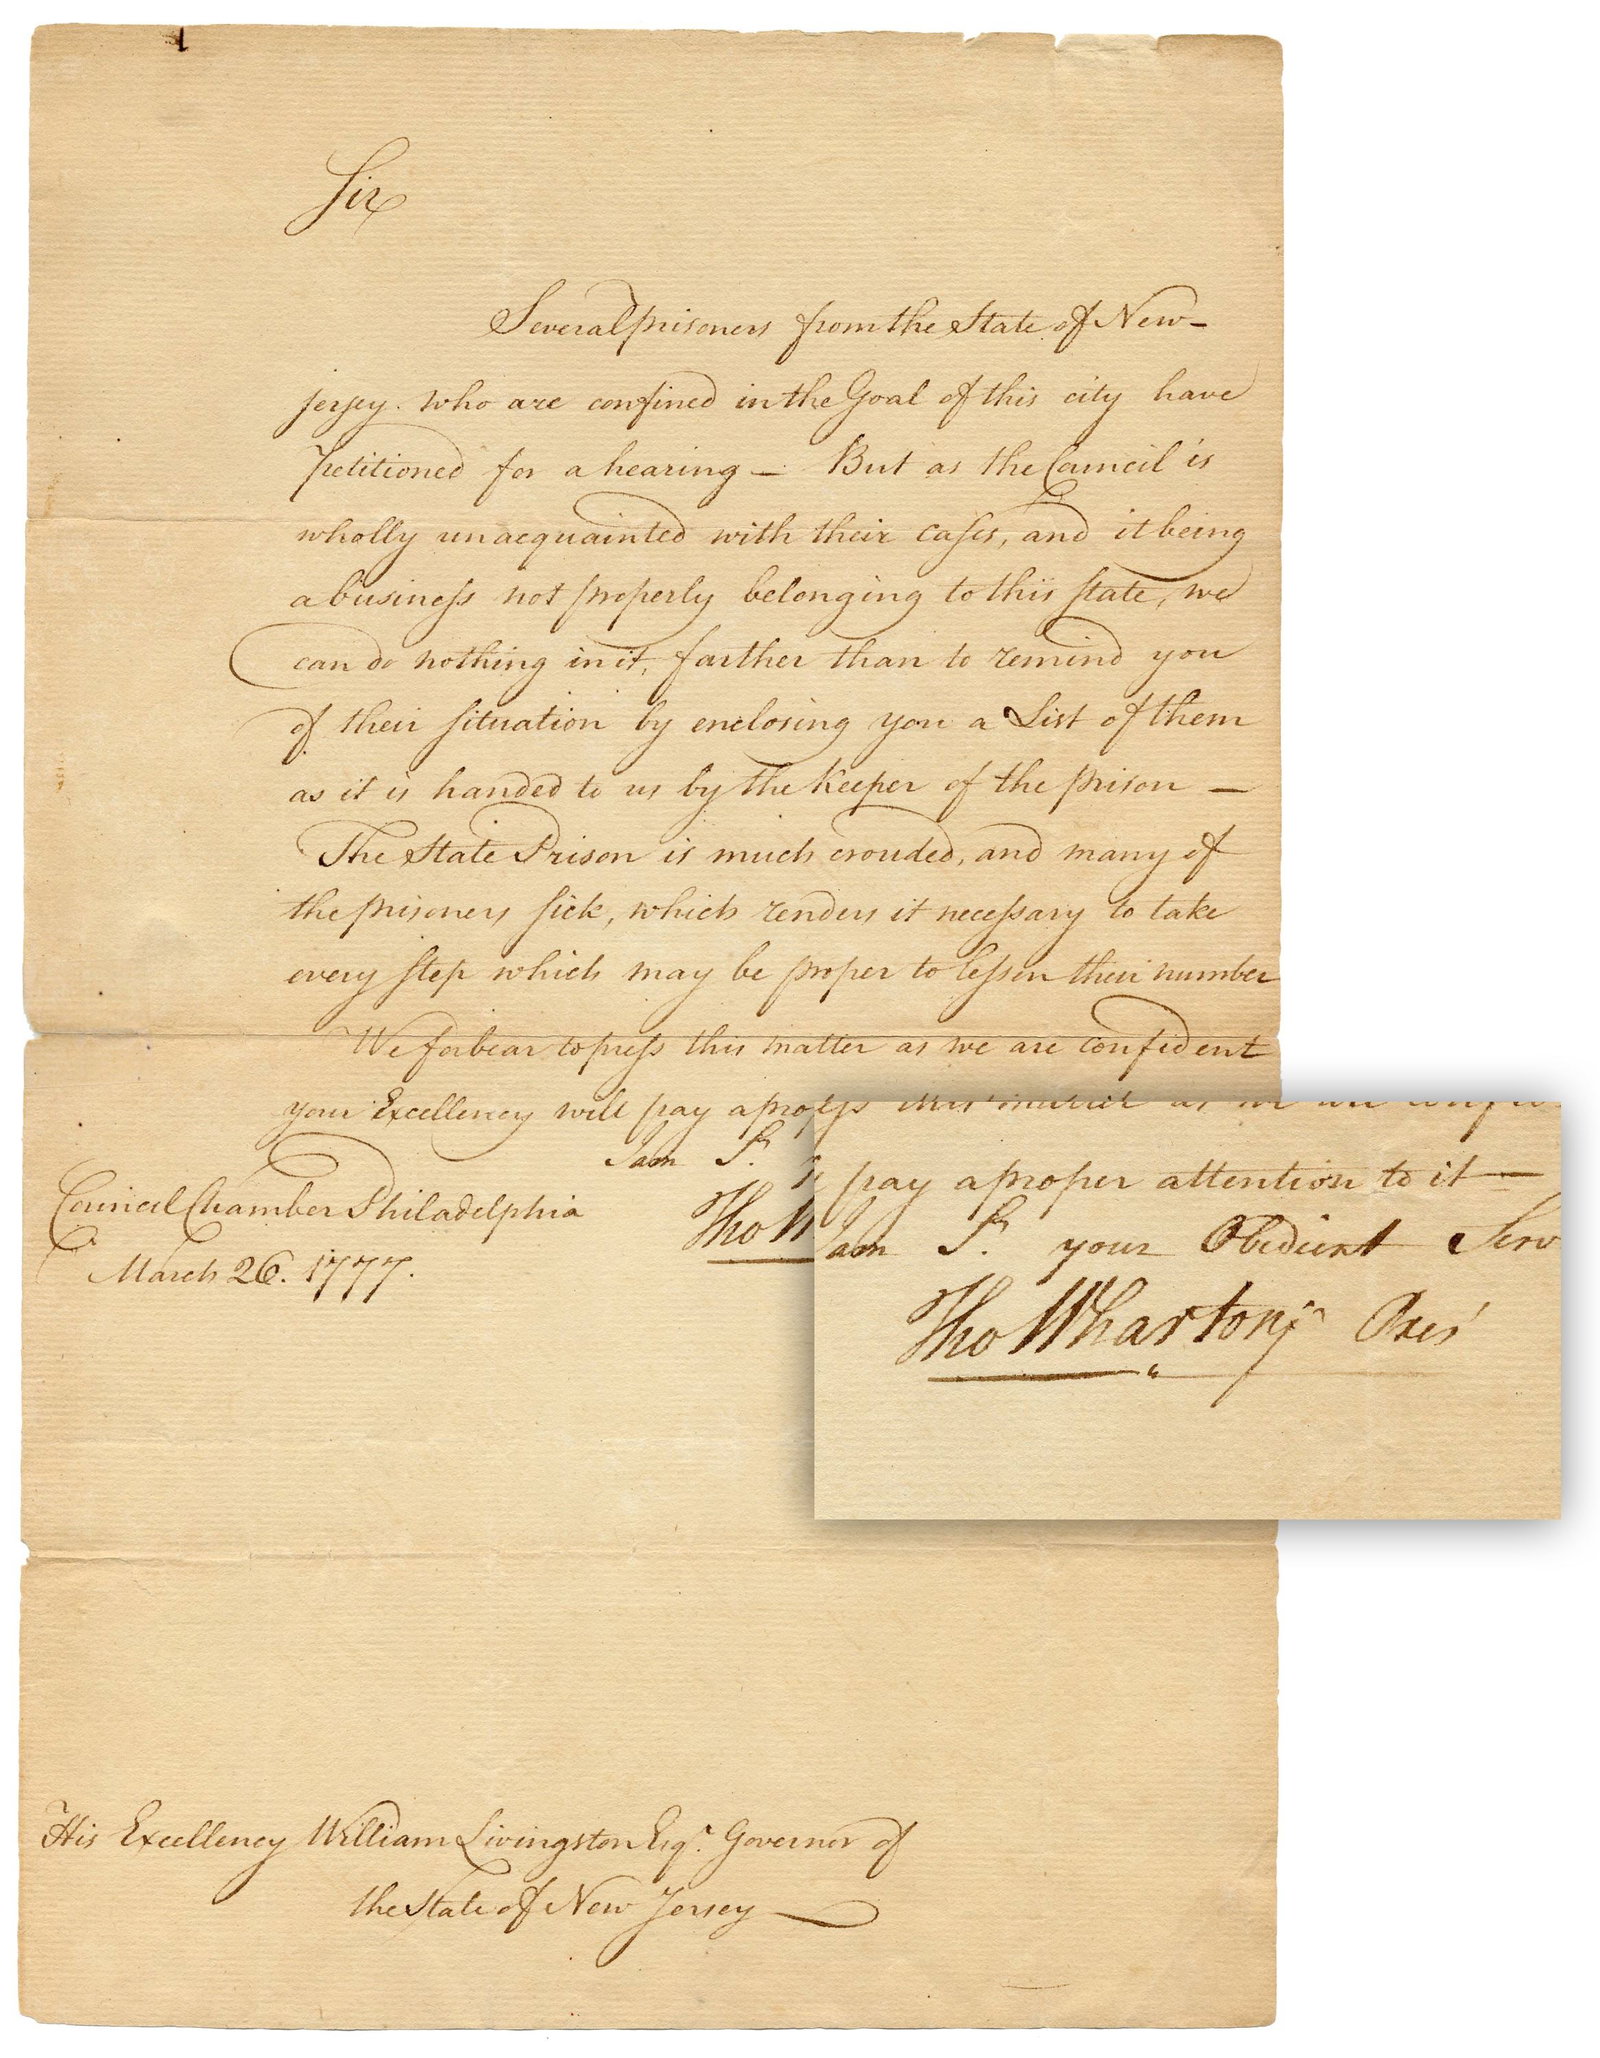 Sir
Several prisoners from the State of New-
jersey. who are confined in the Goal of this city have
petitioned for a hearing — But as the Council is
wholly unacquainted with their cases, and it being
a business not properly belonging to this state, we
can do nothing in it, farther than to remind you
of their situation by enclosing you a List of them
as it is handed to us by the Keeper of the prison —
The State Prison is much crouded, and many of
the prisoners sick, which renders it necessary to take
every step which may be proper to lessen their number
We forbear to press this matter as we are confident
your Excellency will pay a prop
Iam Sr.
Tho W
Council Chamber Philadelphia
March 26. 1777.
pay a proper attention to it —
Iam Sr. your Obedient Serv
Tho Wharton jr Presi
His Excellency William Livingston Esqr. Governor of
the State of New Jersey